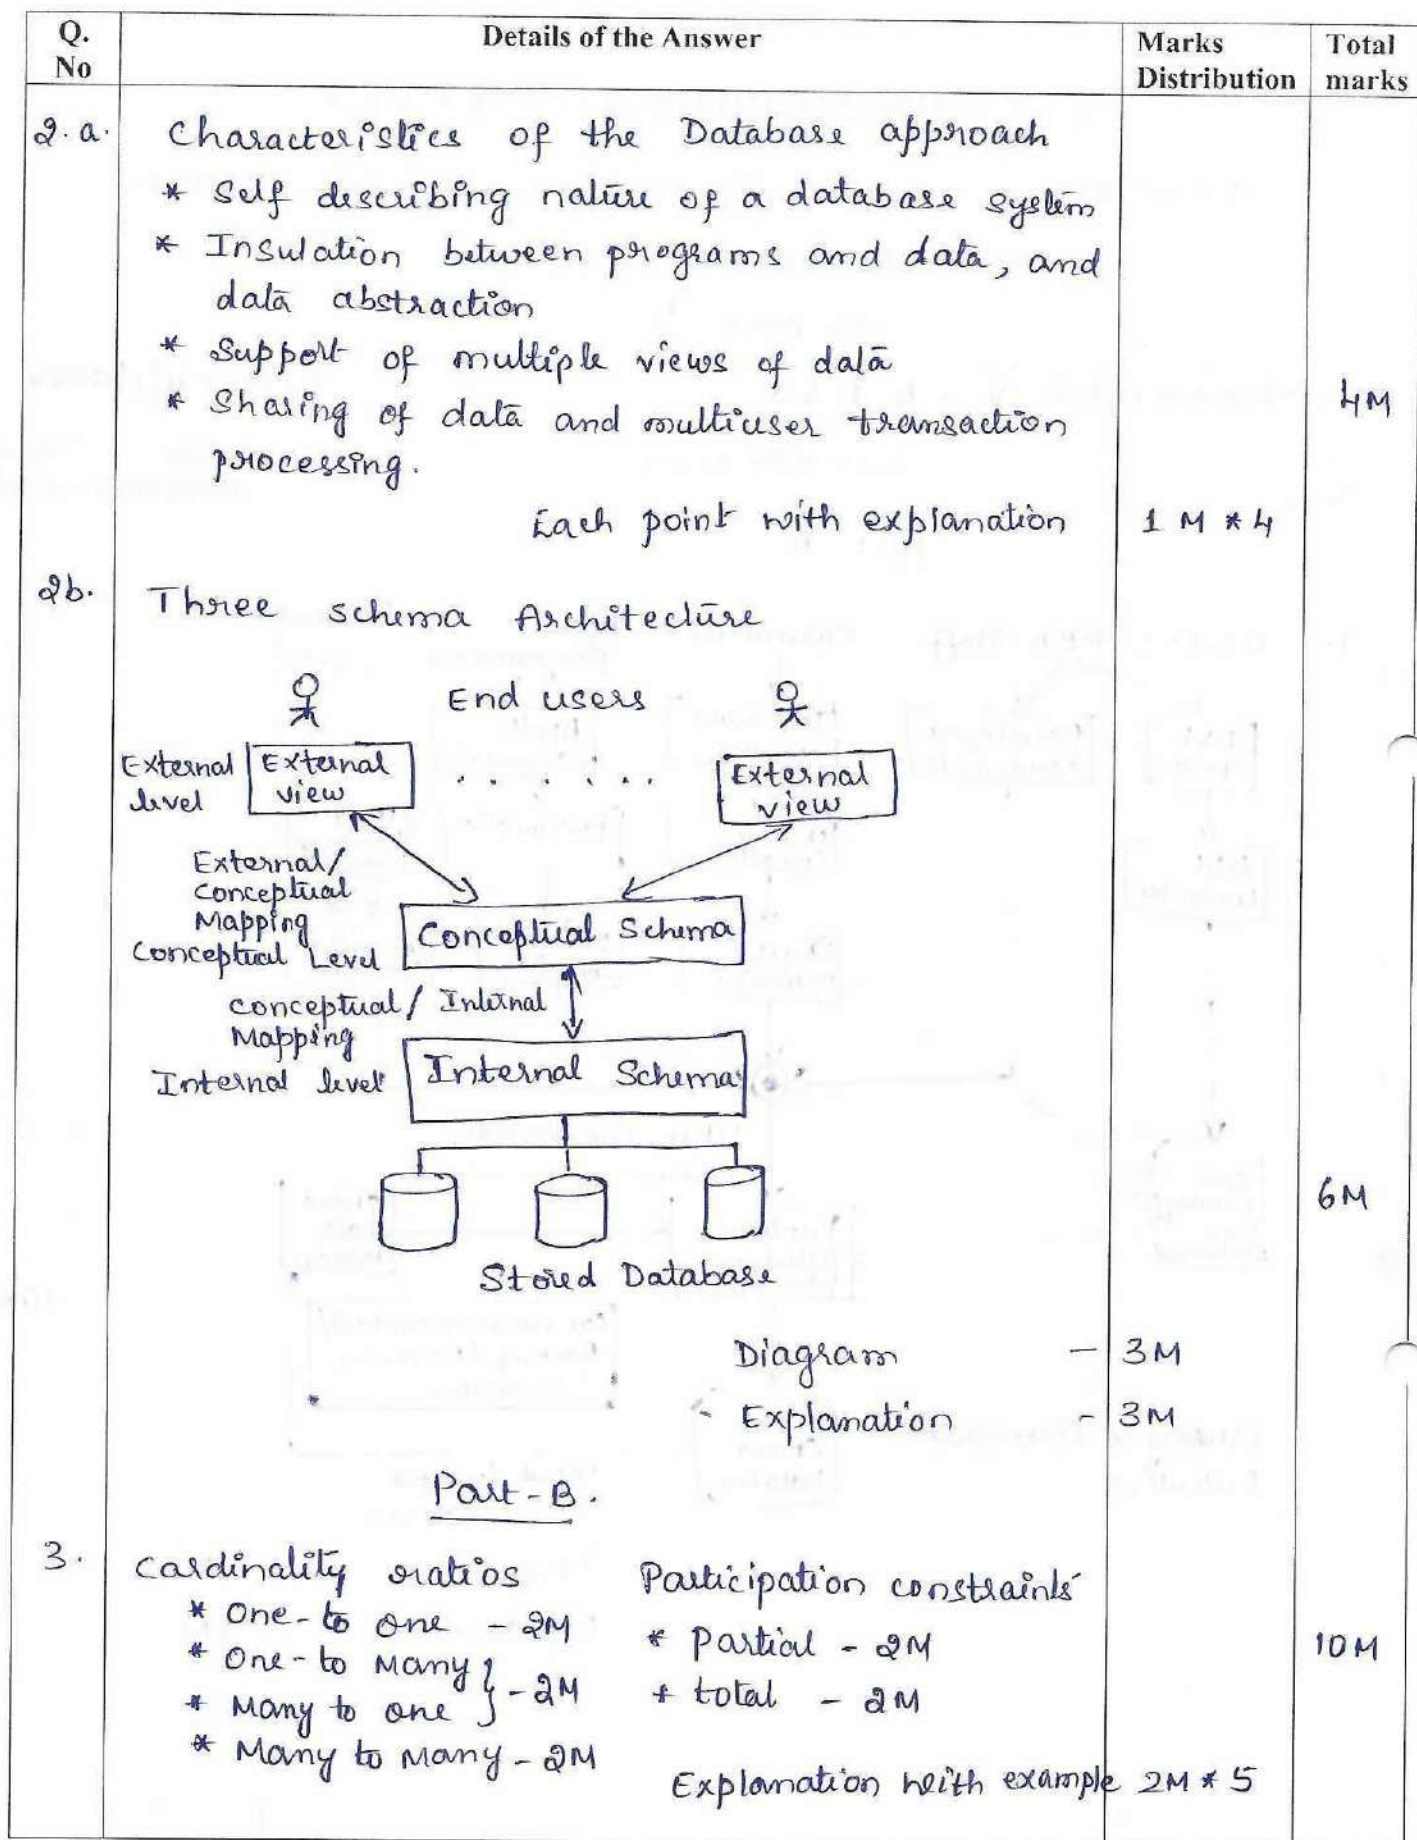 Q. No Details of the Answer Marks Distribution Total marks
2.a. Characteristics of the Database approach
* Self describing nature of a database system
* Insulation between programs and data, and
data abstraction
* Support of multiple views of data
* Sharing of data and multiuser transaction
processing.
4M
Each point with explanation 1 M * 4
2b. Three schema Architecture
End users
External level
External view
. . . . . .
External view
External/
Conceptual
Mapping
Conceptual Level
Conceptual Schema
conceptual / Internal
Mapping
Internal level
Internal Schema
6M
Stored Database
Diagram - 3M
- Explanation - 3M
Part-B.
3. Cardinality ratios
* One-to one - 2M
* One-to Many } - 2M
* Many to one
* Many to Many - 2M
Participation constraints
* Partial - 2M
+ total - 2M
10M
Explanation with example 2M * 5